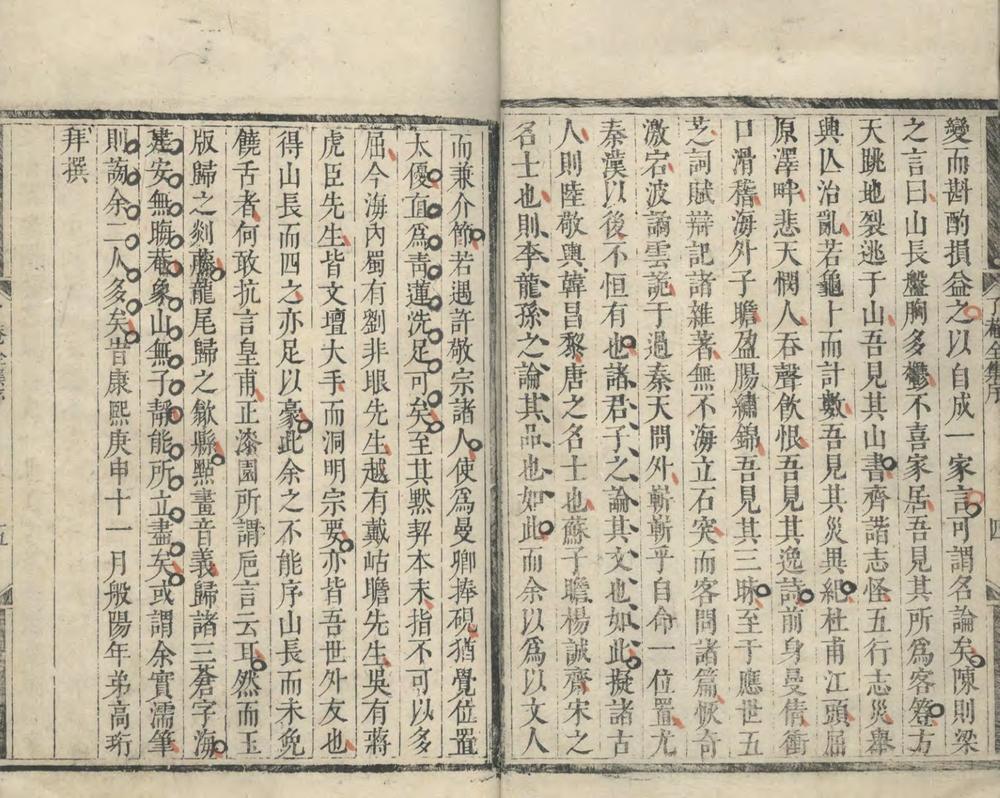 變而斟酌損益之以自成一家言可謂名論矣陳則梁
之言曰山長盤胸多鬱不喜家居吾見其所爲客簦方
天跳地裂逃于山吾見其山書齊諧志怪五行志災舉
興亾治亂若龜卜而計數吾見其災異紀杜甫江頭屈
原澤畔悲天憫人吞聲飲恨吾見其逸詩前身曼倩衝
口滑稽海外子瞻盈腸繡錦吾見其三昧至于應世五
芝詞賦辯記諸雜著無不海立石突而客問諸篇恢奇
激宕波譎雲詭于過秦天問外嶄嶄乎自命一位置尤
秦漢以後不恒有也諸君子之論其文也如此擬諸古
人則陸敬輿韓昌黎唐之名士也蘇子瞻楊誠齋宋之
名士也則李龍孫之論其品也如此而余以爲以文人
而兼介節若遇許敬宗諸人使爲曼卿捧硯猶覺位置
太優直爲青蓮洗足可矣至其默契本末指不可以多
屈今海內蜀有劉非眼先生越有戴岵瞻先生吳有蔣
虎臣先生皆文壇大手而洞明宗要亦皆吾世外友也
得山長而四之亦足以豪此余之不能序山長而未免
饒舌者何敢抗言皇甫正漆園所謂巵言云耳然而玉
版歸之剡藤龍尾歸之歙縣點畫音義歸諸三蒼字海
建安無晦菴象山無子靜能所立盡矣或謂余實濡筆
則謝余二人多矣昔康熙庚申十一月般陽年弟高珩
拜撰
全集序
四
五